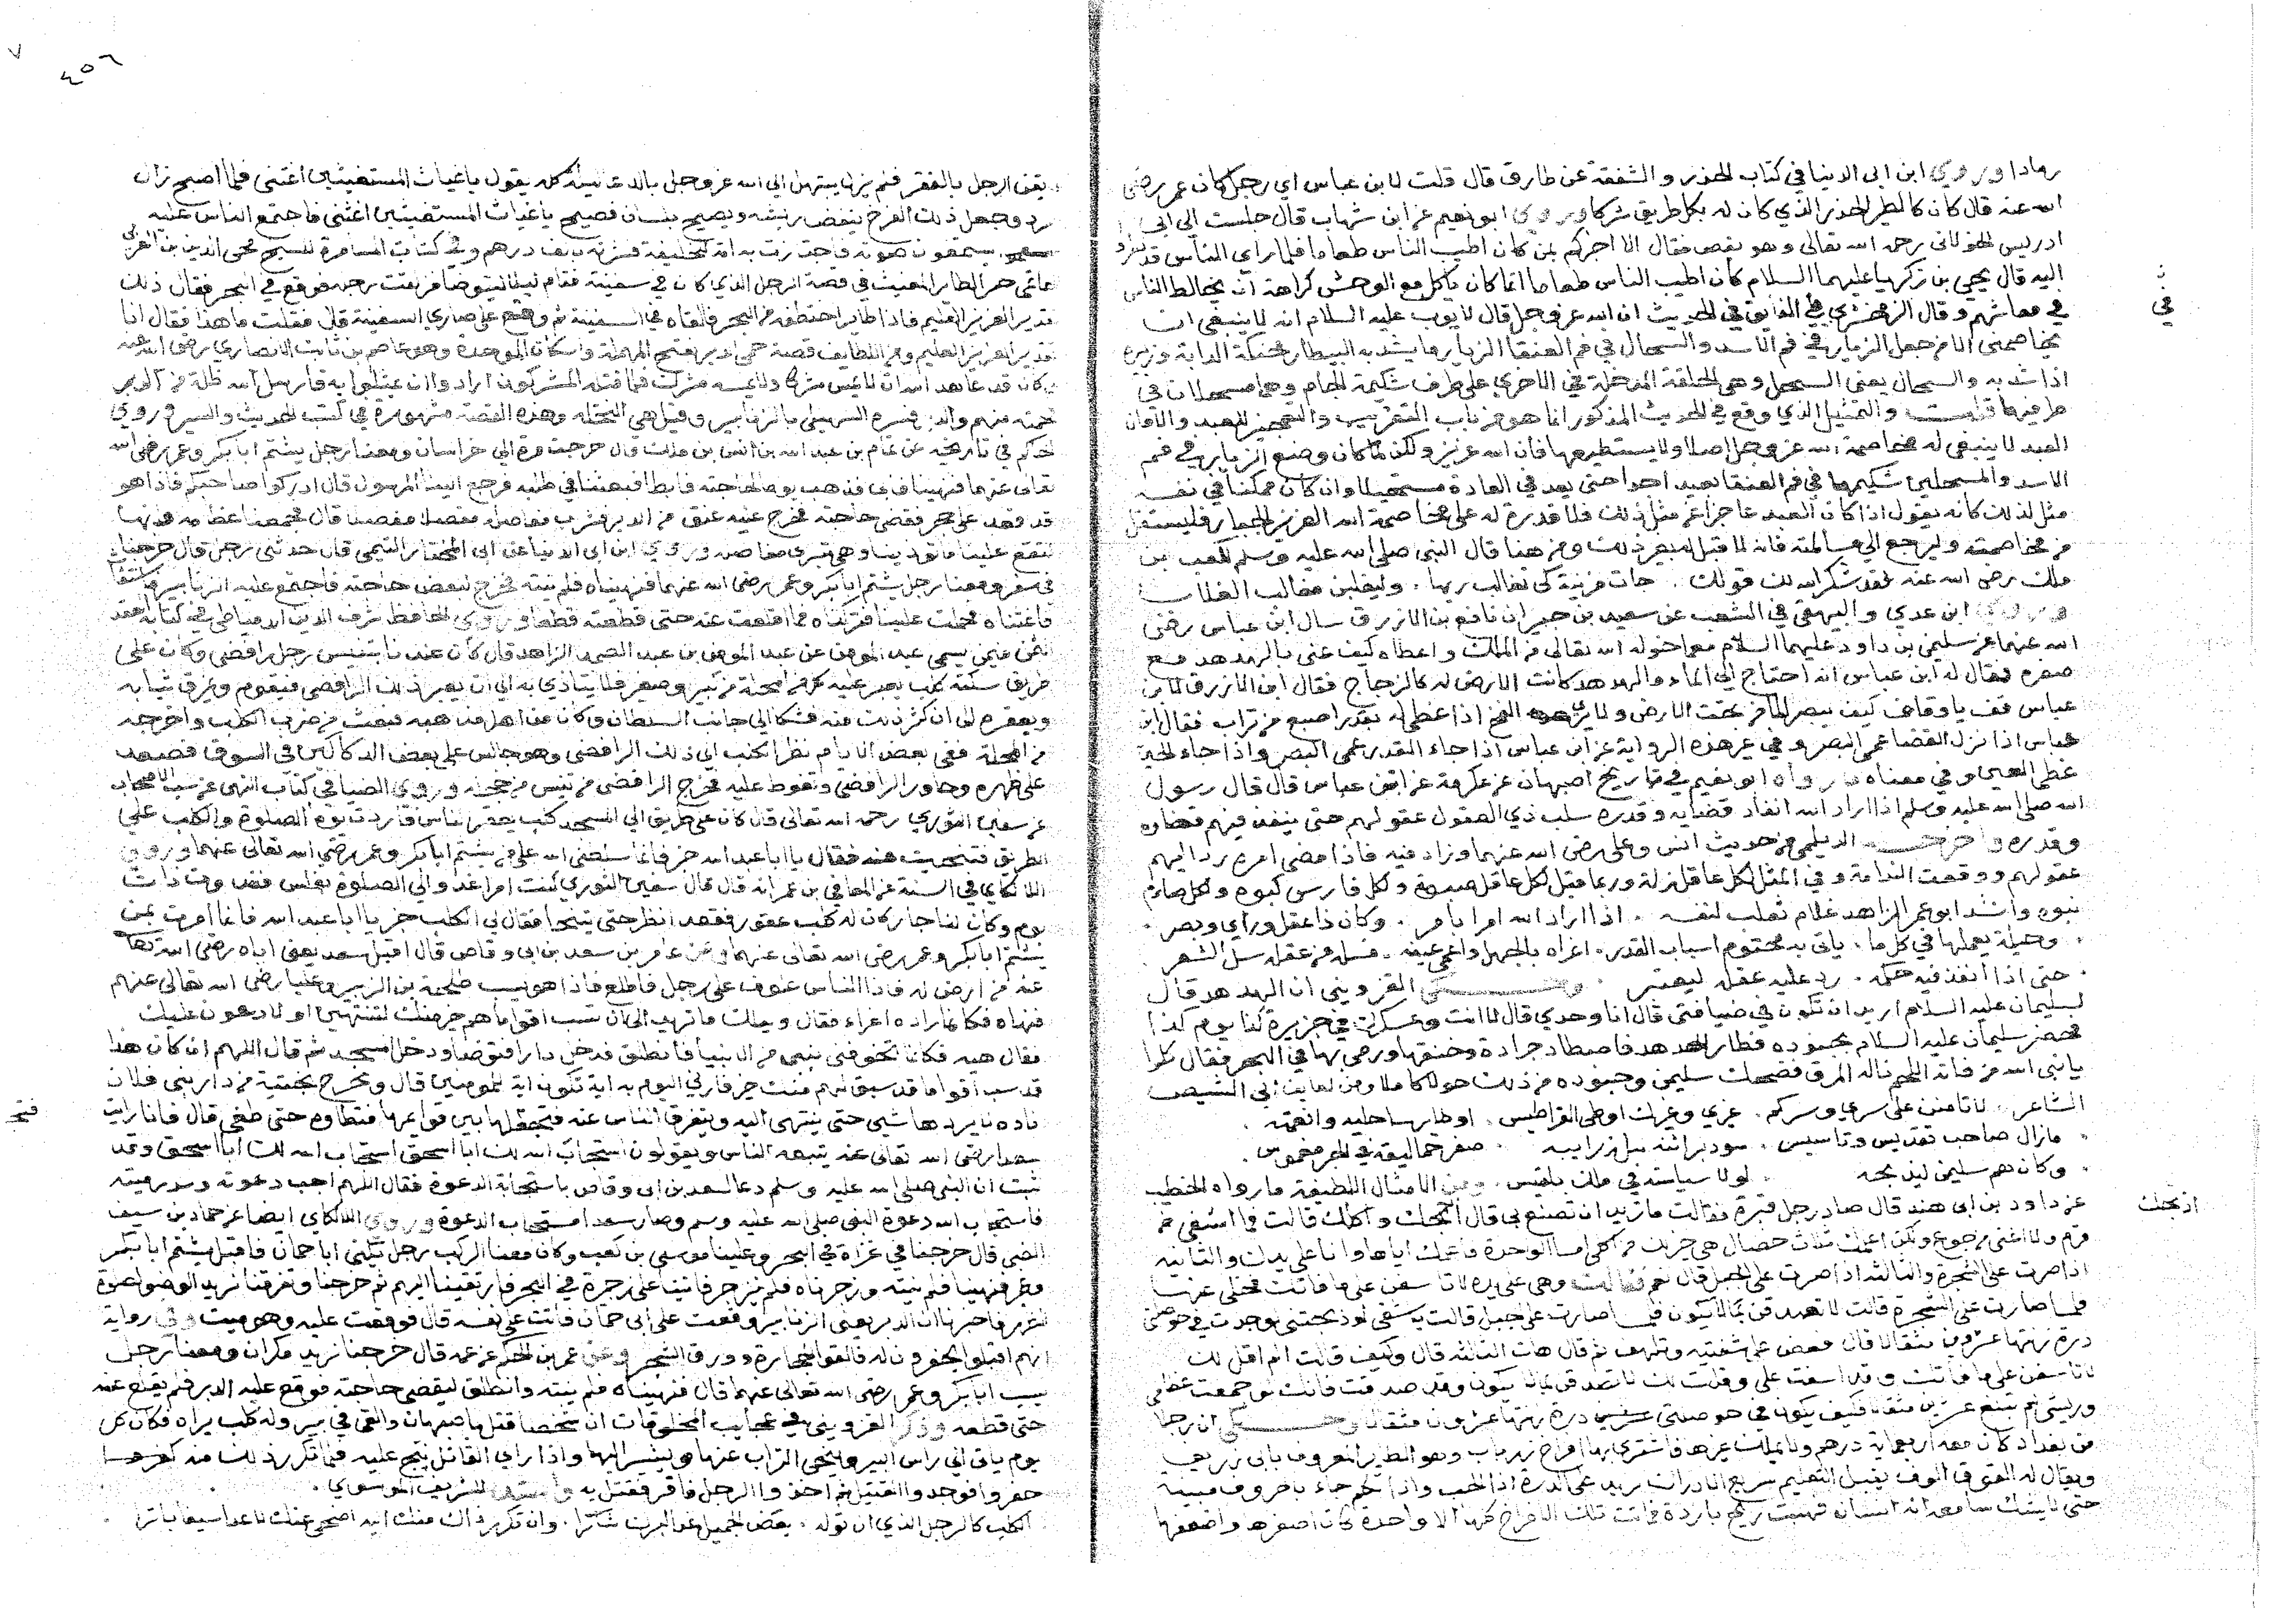 رمادا وروي ابن ابى الدنيا في كتاب الحذر والشفقة عن طارق قال قلت لابن عباس اي رجل كان عمر رضي
الله عنه قال كان كالطير الحذر الذي كان له بكل طريق شركا وروي ابو نعيم عن ابن شهاب قال جلست الى ابى
ادريس الخولانى رحمه الله تعالى وهو يقص فقال الا اخبركم بمن كان اطيب الناس طعاما فلما راي الناس قد نظروا
اليه قال يحيى بن زكريا عليهما السلام كان اطيب الناس طعاما انما كان ياكل مع الوحش كراهة ان يخالط الناس
في معايشهم وقال الزمخشري في الفايق في الحديث ان الله عز وجل قال لايوب عليه السلام انه لا ينبغى ان
يخاصمنى الا من جعل الزيار في فم الاسد والسحال في فم العنقا الزيار ما يشد به البيطار جحفلة الدابة وزيره
اذا شد به والسحال يعنى المسحل وهى الحلقة المدخلة في الاخري على طرف شكيمة اللجام وهما مسحلان في
طرفيها قلت والتمثيل الذي وقع في الحديث المذكور انما هو من باب التقريب والتعجيز للعبد والا فان
العبد لا ينبغى له مخاصمة الله عز وجل اصلا ولا يستطيعها فان الله عزيز ولكن لما كان وضع الزيار في فم
الاسد والمسحلين شكيمها في فم العنقا بعيد احدا حتى يعد في العادة مستحيلا وان كان ممكنا في نفسه
مثل لذلك كانه يقول اذا كان العبد عاجزا عن مثل ذلك فلا قدرة له على مخاصمة الله العزيز الجبار فليستقل
من مخاصمته وليرجع الى مسالمته فانه لا يقبل منه غير ذلك ومن هنا قال النبى صلى الله عليه وسلم لكعب بن
ملك رضى الله عنه لقد شكر الله لك قولك . جات مزينة كى تغالب ربها . وليغلبن مغالب الغلاب
وروي ابن عدي والبيهقى في الشعب عن سعيد بن جبير ان نافع بن الازرق سال ابن عباس رضى
الله عنهما عن سليمن بن داود عليهما السلام مع ما خوله الله تعالى من الملك واعطاه كيف عنى بالهدهد مع
صغره فقال له ابن عباس انه احتاج الى الماء والهدهد كانت الارض له كالزجاج فقال ابن الازرق لابن
عباس قف يا وقاف كيف يبصر الماء من تحت الارض ولا يري الفخ اذا غطى له بقدر اصبع من تراب فقال ابن
عباس اذا نزل القضا عمى البصر وفي غير هذه الرواية عن ابن عباس اذا جاء القدر عمى البصر واذا جاء الحين
غطى العين وفي معناه ما رواه ابو نعيم في تاريخ اصبهان عن عكرمة عن ابن عباس قال قال رسول
الله صلى الله عليه وسلم اذا اراد الله انفاد قضايه وقدره سلب ذي العقول عقولهم حتى ينفذ فيهم قضاوه
وقدره واخرجه الديلمى من حديث انس وعلى رضى الله عنهما وزاد فيه فاذا مضى امره رد اليهم
عقولهم ووقعت الندامة وفي المثل لكل عاقل زلة وربما قيل لكل عاقل هفوة ولكل فارس كبوه ولكل صارم
نبوه وانشد ابو عمر الزاهد غلام ثعلب لنفسه . اذا اراد الله امرا بامر . وكان ذا عقل وراي وبصر .
. وحيلة يعملها في كل ما . ياتى به محتوم اسباب القدر . اغراه بالجهل واعمى عينه . فسله من عقله سل الشعر
. حتى اذا انفذ فيه حكمه . رد عليه عقله ليعتبر . وحكى القزويني ان الهدهد قال
لسليمان عليه السلام اريد ان تكون في ضيافتى قال انا وحدي قال لا انت وعسكرك في جزيرة كذا يوم كذا
فحضر سليمان عليه السلام بجنوده فطار الهدهد فاصطاد جرادة وخنقها ورمى بها في البحر فقال كلوا
يا نبى الله من فاته اللحم ناله المرق فضحك سليمن وجنوده من ذلك حولا كاملا ومن لطايف ابى الشيص
الشاعر . لا تامنن على سري وسركم . غيري وغيرك او طى القراطيس . او طاير ساحليه وانعته .
. مازال صاحب تقديس وتاسيس . سود براثنه ميل ذوايبه . صفر حماليقه في الحبر مغموس .
. وكان هم سليمن ليذبحه . لولا سياسته في ملك بلقيس . ومن الامثال اللطيفة ما رواه الخطيب
عن داود بن ابى هند قال صاد رجل قبرة فقالت ما تريد ان تصنع بى قال اذبحك واكلك قالت فما اشفى من
قرم ولا اغنى من جوع ولكن اعلمك ثلاث خصال هى خير لك من اكلى اما الواحدة فاعلمك اياها وانا على يدك والثانيه
اذا صرت على الشجرة والثالثه اذا صرت على الجبل قال نعم فقالت وهى على يده لا تاسفن على ما فاتك فخلى عنها
فلما صارت على الشجرة قالت لا تصدقن بما لا يكون فلما صارت على الجبل قالت يا شقى لو ذبحتنى لوجدت في حوصلتى
درة زنتها عشرين مثقالا قال فعض على شفتيه وتلهف ثم قال هات الثالثه قال وكيف قالت الم اقل لك
لا تاسفن على ما فاتك وقد اسفت على وقلت لك لا تصدقن بما لا يكون وقد صدقت فانك لو جمعت عظامى
وريشى لم تبلغ عشرين مثقالا فكيف يكون في حوصلتى درة زنتها عشرون مثقالا وحكى ان رجلا
من بغداد كان معه اربعماية درهم ولا يملك غيرها فاشتري بها افراخ زرياب وهو الطير المعروف بابى زريق
ويقال له القيق
حتى لا يشك سامعه انه انسان فهبت ريح باردة فماتت تلك الافراخ كلها الا واحدة كان اصغرها واضعفها
٤٥٦
يقن الرجل بالفقر فلم يزل يبتهل الى الله عز وجل بالدعا ليله كله يقول يا غياث المستغيثين اغثنى فلما اصبح زال
برد وجعل ذلك الفرخ ينفض ريشه ويصيح بلسان فصيح يا غياث المستغيثين اغثنى فاجتمع الناس عليه
يستمعون صوته فاجتازت به امة للخليفة فشرته بالف درهم وفي كتاب المسامرة للشيخ محى الدين بن العربى
قدير العزيز العليم فاذا طاير اختطفه من البحر والقاه في السفينة ثم وقع على صاري السفينة قال فقلت ما هذا فقال انا
تقدير العزيز العليم ومن اللطايف قصة حمى الدبر بفتح المهملة واسكان الموحدة وهو عاصم بن ثابت الانصاري رضى الله عنه
كان قد عاهد الله ان لا يمس مشركا ولا يمسه مشرك فلما قتله المشركون ارادوا ان يمثلوا به فارسل الله ظلة من الدبر
فحمته منهم والدبر فسره السهيلى بالزنابير وقيل هى النحله وهذه القصة مشهورة في كتب الحديث والسير وروي
الحاكم في تاريخه عن ثمام بن عبد الله بن انس بن ملك قال خرجت مرة الى خراسان ومعنا رجل يشتم ابا بكر وعمر رضى الله
تعالى عنهما فنهيناه فابى فذهب يوما لحاجته فابطا فبعثنا في طلبه فرجع الينا الرسول قال ادركوا صاحبكم فاذا هو
قد قعد على جحر فقضى حاجته فخرج عليه عنق من الدبر فنثرت مفاصله مفصلا مفصلا قال فجمعنا عظامه وانها
لتقع علينا ما توذينا وهى تبري مفاصله وروي ابن ابى الدنيا عن ابى المختار التيمى قال حدثنى رجل قال خرجنا
في سفر ومعنا رجل يشتم ابا بكر وعمر رضى الله عنهما فنهيناه فلم ينته فخرج لبعض حاجته فاجتمع عليه الزنابير فاستغاث
فاغثناه فحملت علينا فتركناه فما اقلعت عنه حتى قطعته قطعا وروي الحافظ شرف الدين الدمياطى في كتابه العقد
المثمن فيمن يسمى عبد المومن عن عبد المومن بن عبد الصمد الزاهد قال كان عندنا بتنيس رجل رافضى وكان على
طريق سكنه كلب يعبر عليه كل من المحلة من كبير وصغير فلا يتاذي به الى ان يعبر ذلك الرافضى فيقوم ويمزق ثيابه
ويعقره الى ان كثر ذلك منه فشكا الى جانب السلطان وكان من اهل مذهبه فبعث من ضرب الكلب واخرجه
من المحلة ففي بعض الايام نظر الكلب الى ذلك الرافضى وهو جالس على بعض الدكاكين في السوق فصعد
على ظهره وحاور الرافضى وتغوط عليه فخرج الرافضى من تنيس من خجله وروي الضيا في كتاب النهى عن سب الاصحاب
عن سفين الثوري رحمه الله تعالى قال كان على طريق الى المسجد كلب يعقر الناس فاردت يوما الصلوة والكلب على
الطريق فتنحيت عنه فقال يا ابا عبد الله جز فانما سلطنى الله على من يشتم ابا بكر وعمر رضى الله تعالى عنهما وروي
اللالكاي في السنة عن المعافى بن عمر انه قال قال سفين الثوري كنت امرا اغدوا الى الصلوة بغلس فغدوت ذات
يوم وكان لنا جار كان له كلب عقور فقعد انظر حتى يتنحا فقال لى الكلب جز يا ابا عبد الله فانما امرت بمن
يشتم ابا بكر وعمر رضى الله تعالى عنهما وعن عامر بن سعد بن ابى وقاص قال اقبل سعد يعنى اباه رضى الله تعالى
عنه من ارض له فاذا الناس عكوف على رجل فاطلع فاذا هو يسب طلحة بن الزبير وعليا رضى الله تعالى عنهم
فنهاه فكانما زاده اغراء فقال ويلك ما تريد الى ان تسب اقواما هم خير منك لتنتهين او لادعون عليك
فقال هيه فكانما تخوفنى بنبى من الانبيا فانطلق فدخل دارا فتوضا ودخل المسجد ثم قال اللهم ان كان هذا
قد سب اقواما قد سبق لهم منك خير فارنى اليوم به اية تكون اية للمومنين قال وتخرج بختية من دار بنى فلان
نادة لا يردها شيى حتى ينتهى اليه ويتفرق الناس عنه فتجعله بين قوايمها فتطاوه حتى طفى قال فانا رايت
سعدا رضى الله تعالى عنه يتبعه الناس ويقولون استجاب الله لك ابا اسحق استجاب الله لك ابا اسحق وقد
ثبت ان النبى صلى الله عليه وسلم دعا لسعد بن ابى وقاص باستجابة الدعوة فقال اللهم اجب دعوته وسدد رميته
فاستجاب الله دعوة النبى صلى الله عليه وسلم وصار سعدا مستجاب الدعوة وروي اللالكاي ايضا عن حماد بن سيف
الضبى قال خرجنا في غزاة في البحر وعلينا موسى بن كعب وكان معنا الركب رجل يكنى ابا حمان فاقبل يشتم ابا بكر
وعمر فنهينا فلم ينته وزجرناه فلم ينزجر فاتينا على جزيرة في البحر فارتقينا اليهم ثم خرجنا وتفرقنا نريد الوضوا لصلوة
الظهر فاخبرنا ان الدبر يعنى الزنابير وقعت على ابى حمان فاتت على نفسه قال فوقعت عليه وهو ميت وفي رواية
انهم اقبلوا يحفرون له فالقوا الحجارة وورق الشجر وعن عمر بن الحكم عن عمه قال خرجنا نريد مكران ومعنا رجل
يسب ابا بكر وعمر رضى الله تعالى عنهما قال فنهيناه فلم ينته وانطلق ليقضى حاجته فوقع عليه الدبر فلم يقلع عنه
حتى قطعه وذكر القزويني في عجايب المخلوقات ان شخصا قتل باصبهان والقى في بير وله كلب يراه فكان كل
يوم ياتى الى راس البير وينحى التراب عنها ويشير اليها واذا راي القاتل نبح عليه فلما تكرر ذلك منه
حفروا فوجدوا القتيل ثم اخذوا الرجل فاقر فقتل به وانشدوا للشريف الموسوي .